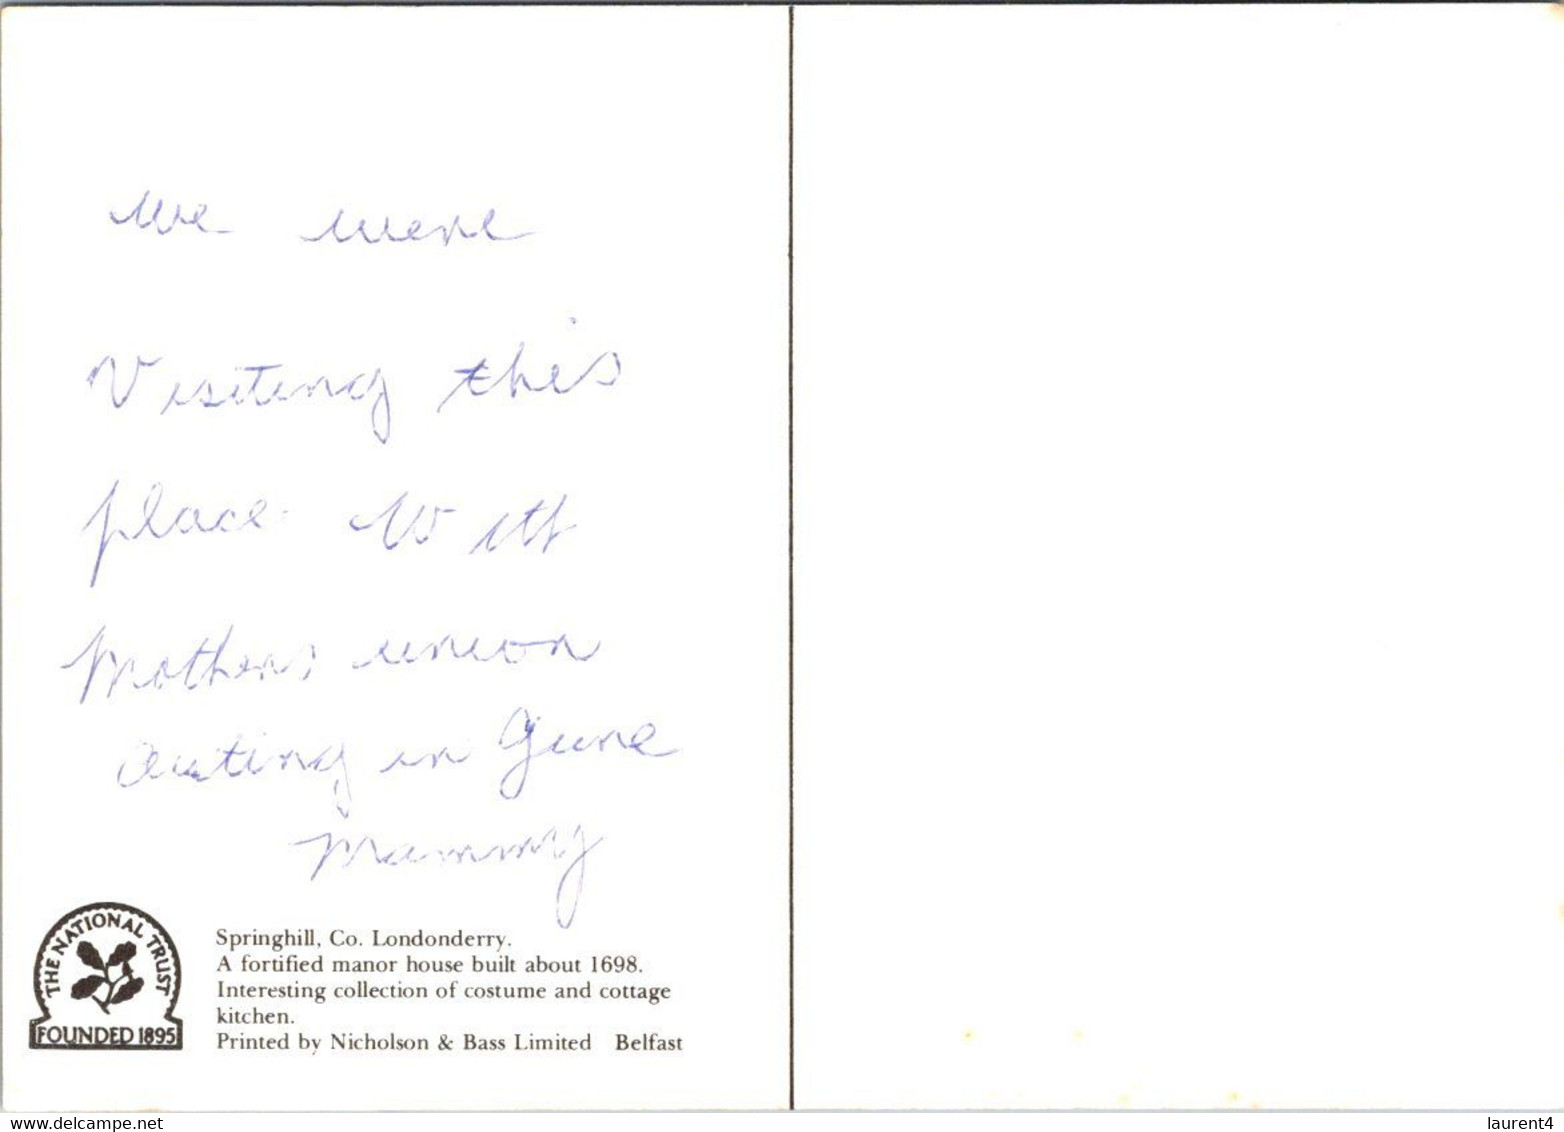 We were
Visiting this
place with
Mothers union
outing in June
Mammy
THE NATIONAL TRUST
FOUNDED 1895
Springhill, Co. Londonderry.
A fortified manor house built about 1698.
Interesting collection of costume and cottage
kitchen.
Printed by Nicholson & Bass Limited Belfast
www.delcampe.net
laurent4